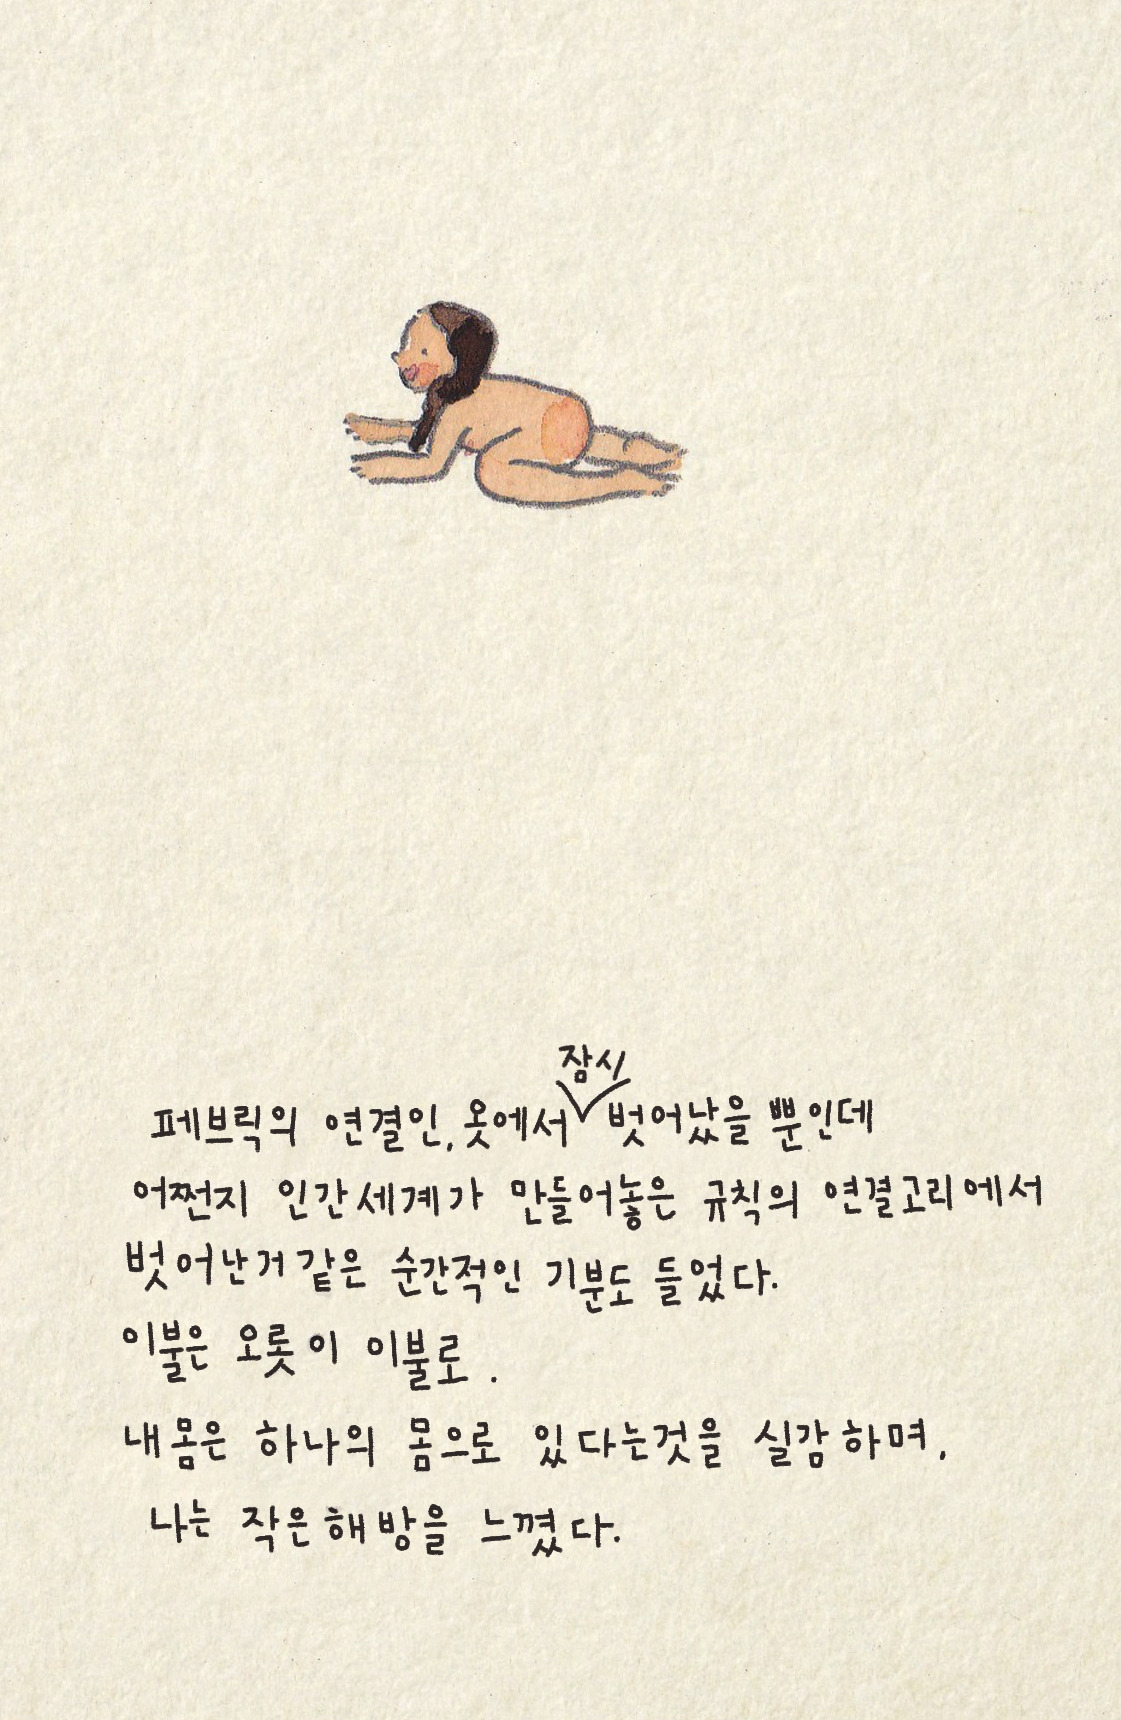 잠시
페브릭의 연결인, 옷에서 벗어났을 뿐인데
어쩐지 인간세계가 만들어놓은 규칙의 연결고리에서
벗어난거 같은 순간적인 기분도 들었다.
이불은 오롯이 이불로.
내 몸은 하나의 몸으로 있다는것을 실감하며,
나는 작은해방을 느꼈다.